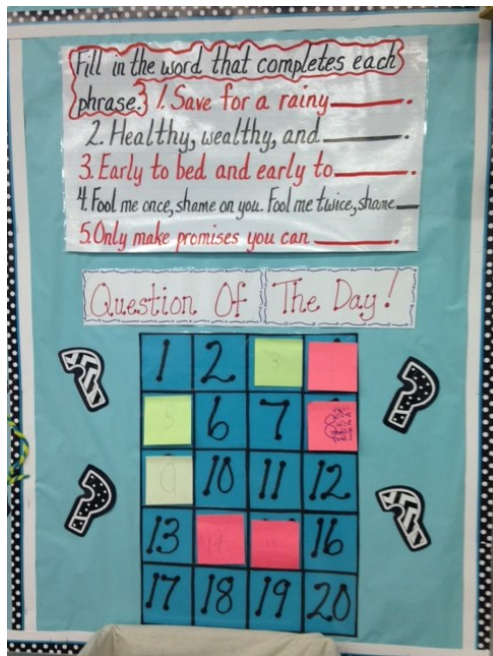 Fill in the word that completes each
phrase. 1. Save for a rainy______.
2. Healthy, wealthy, and______.
3. Early to bed and early to______.
4. Fool me once, shame on you. Fool me twice, shame__
5. Only make promises you can ______.
Question Of The Day!
1 2 3
5 6 7
9 10 11 12
13 14 16
17 18 19 20